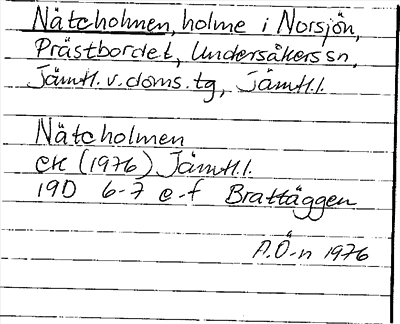 Nätcholmen, holme i Norsjön,
Prästbordet, Undersåkers sn,
Jämtl. v. doms. tg, Jämtl. l.
Nätcholmen
ek (1976) Jämtl. l.
19D 6-7 e-f Brattäggen
A.Ö-n 1976